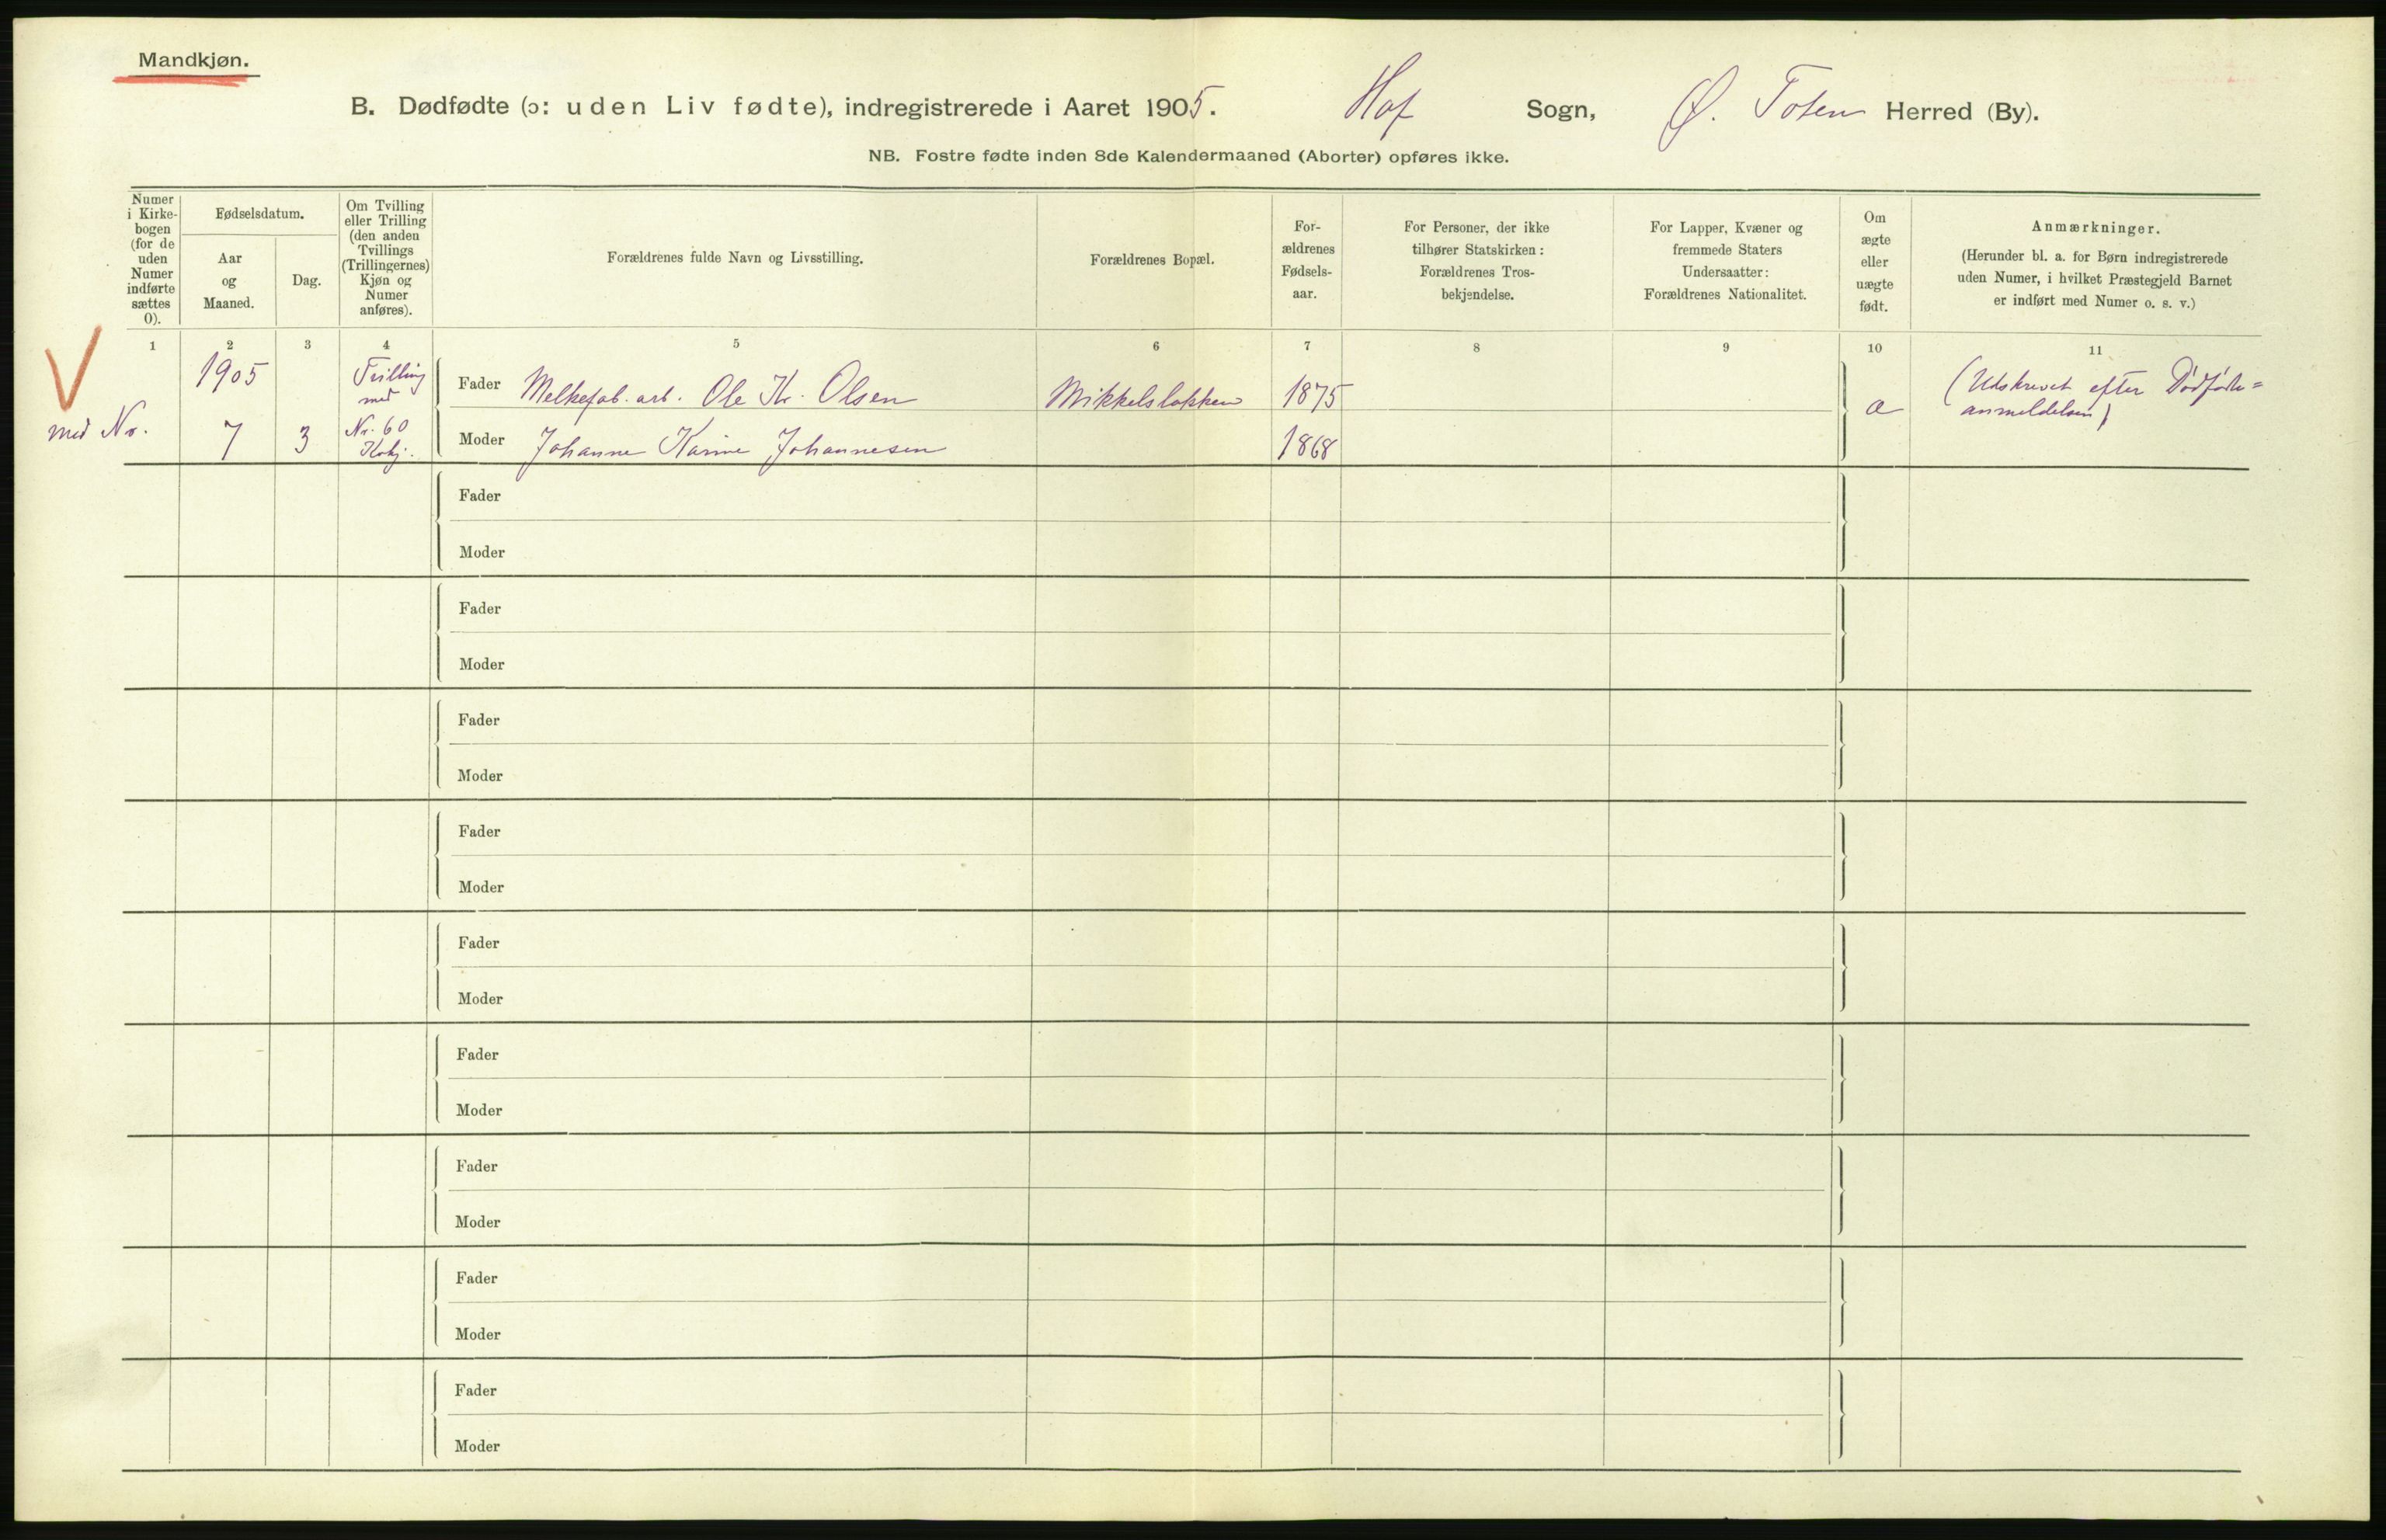 Mandkjøn.
B. Dødfødte (ɔ: uden Liv fødte), indregistrerede i Aaret 1905. Hof Sogn, Ø. Toten Herred (By).
NB. Fostre fødte inden 8de Kalendermaaned (Aborter) opføres ikke.
Numer
i Kirke-
bogen
(for de
uden
Numer
indførte
sættes
0).
Fødselsdatum.
Aar
og
Maaned.
Dag.
Om Tvilling
eller Trilling
(den anden
Tvillings
(Trillingernes)
Kjøn og
Numer
anføres).
Forældrenes fulde Navn og Livsstilling.
Forældrenes Bopæl.
For-
ældrenes
Fødsels-
aar.
For Personer, der ikke
tilhører Statskirken:
Forældrenes Tros-
bekjendelse.
For Lapper, Kvæner og
fremmede Staters
Undersaatter:
Forældrenes Nationalitet.
Om
ægte
eller
uægte
født.
Anmærkninger.
(Herunder bl. a. for Børn indregistrerede
uden Numer, i hvilket Præstegjeld Barnet
er indført med Numer o. s. v.)
1 2 3 4 5 6 7 8 9 10 11
med No.
1905
7 3
med
Nr. 60
Fader Melkefab. arb. Ole Kr. Olsen Mikkelsløkken 1875
Moder Johanne Karine Johannesen 1868
(Udskrevet efter Dødføde=
anmeldelsen)
Fader
Moder
Fader
Moder
Fader
Moder
Fader
Moder
Fader
Moder
Fader
Moder
Fader
Moder
Fader
Moder
Fader
Moder